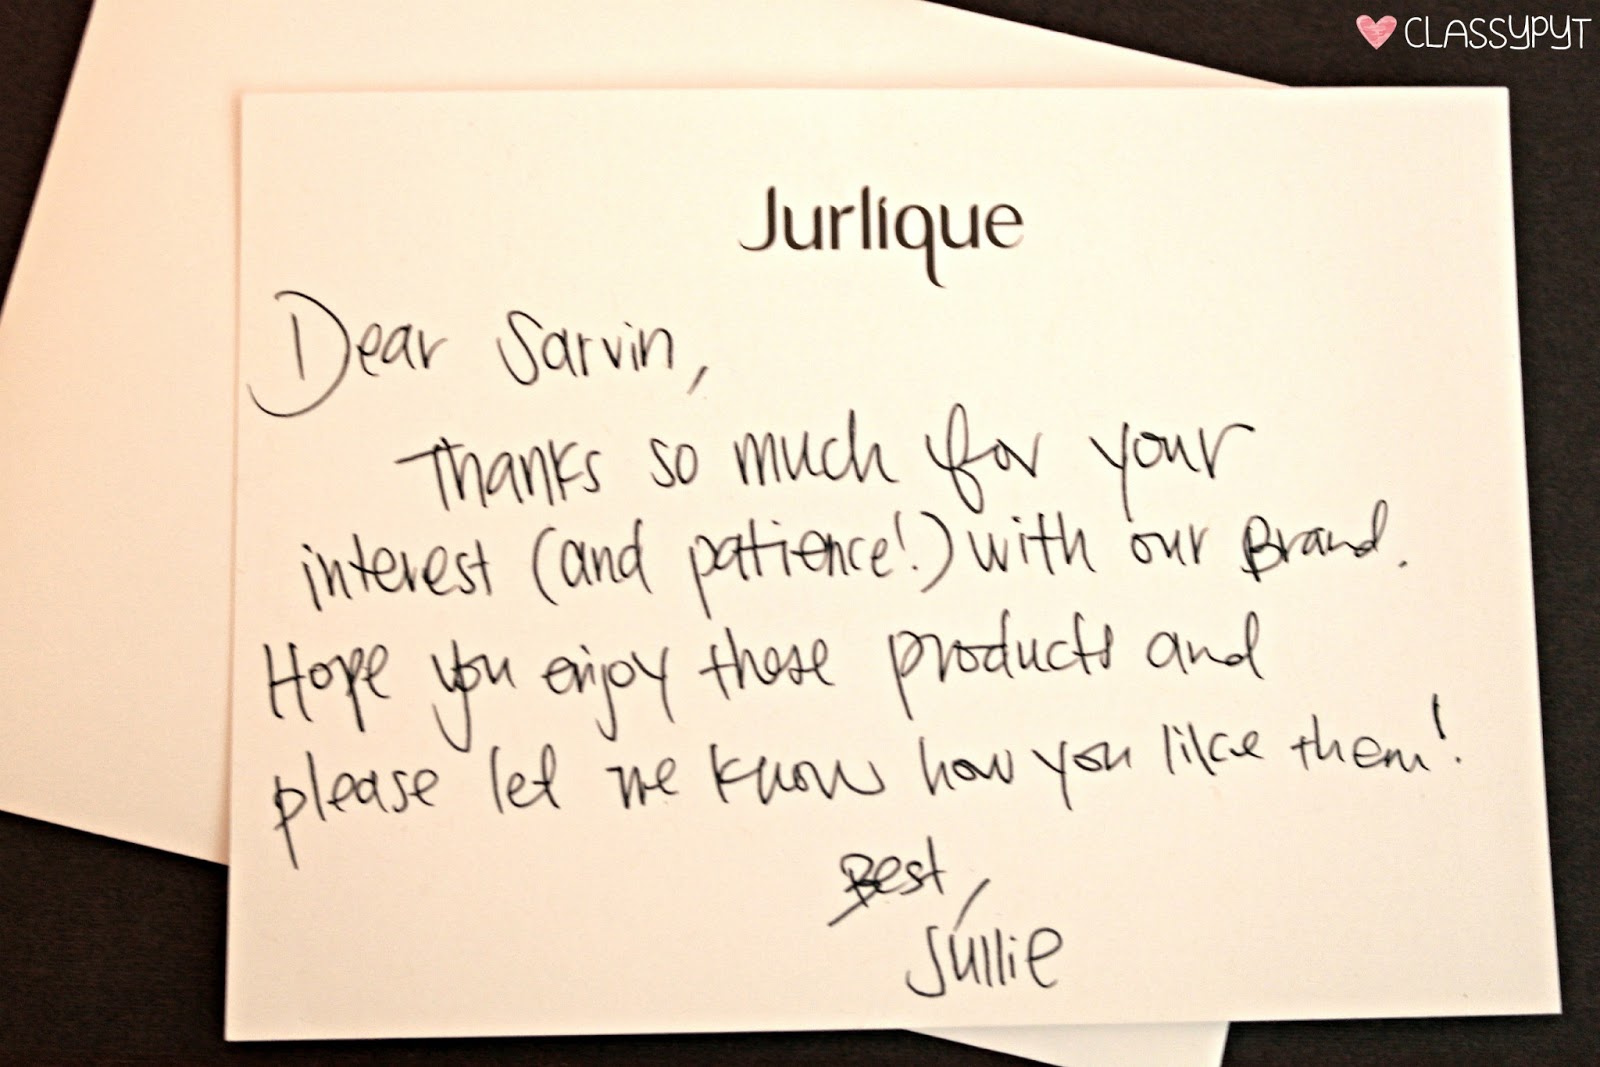 CLASSYPYT
Jurlique
Dear Sarvin,
Thanks so much for your
interest (and patience!) with our Brand.
Hope you enjoy these products and
please let me know how you like them!
Best,
Jullie